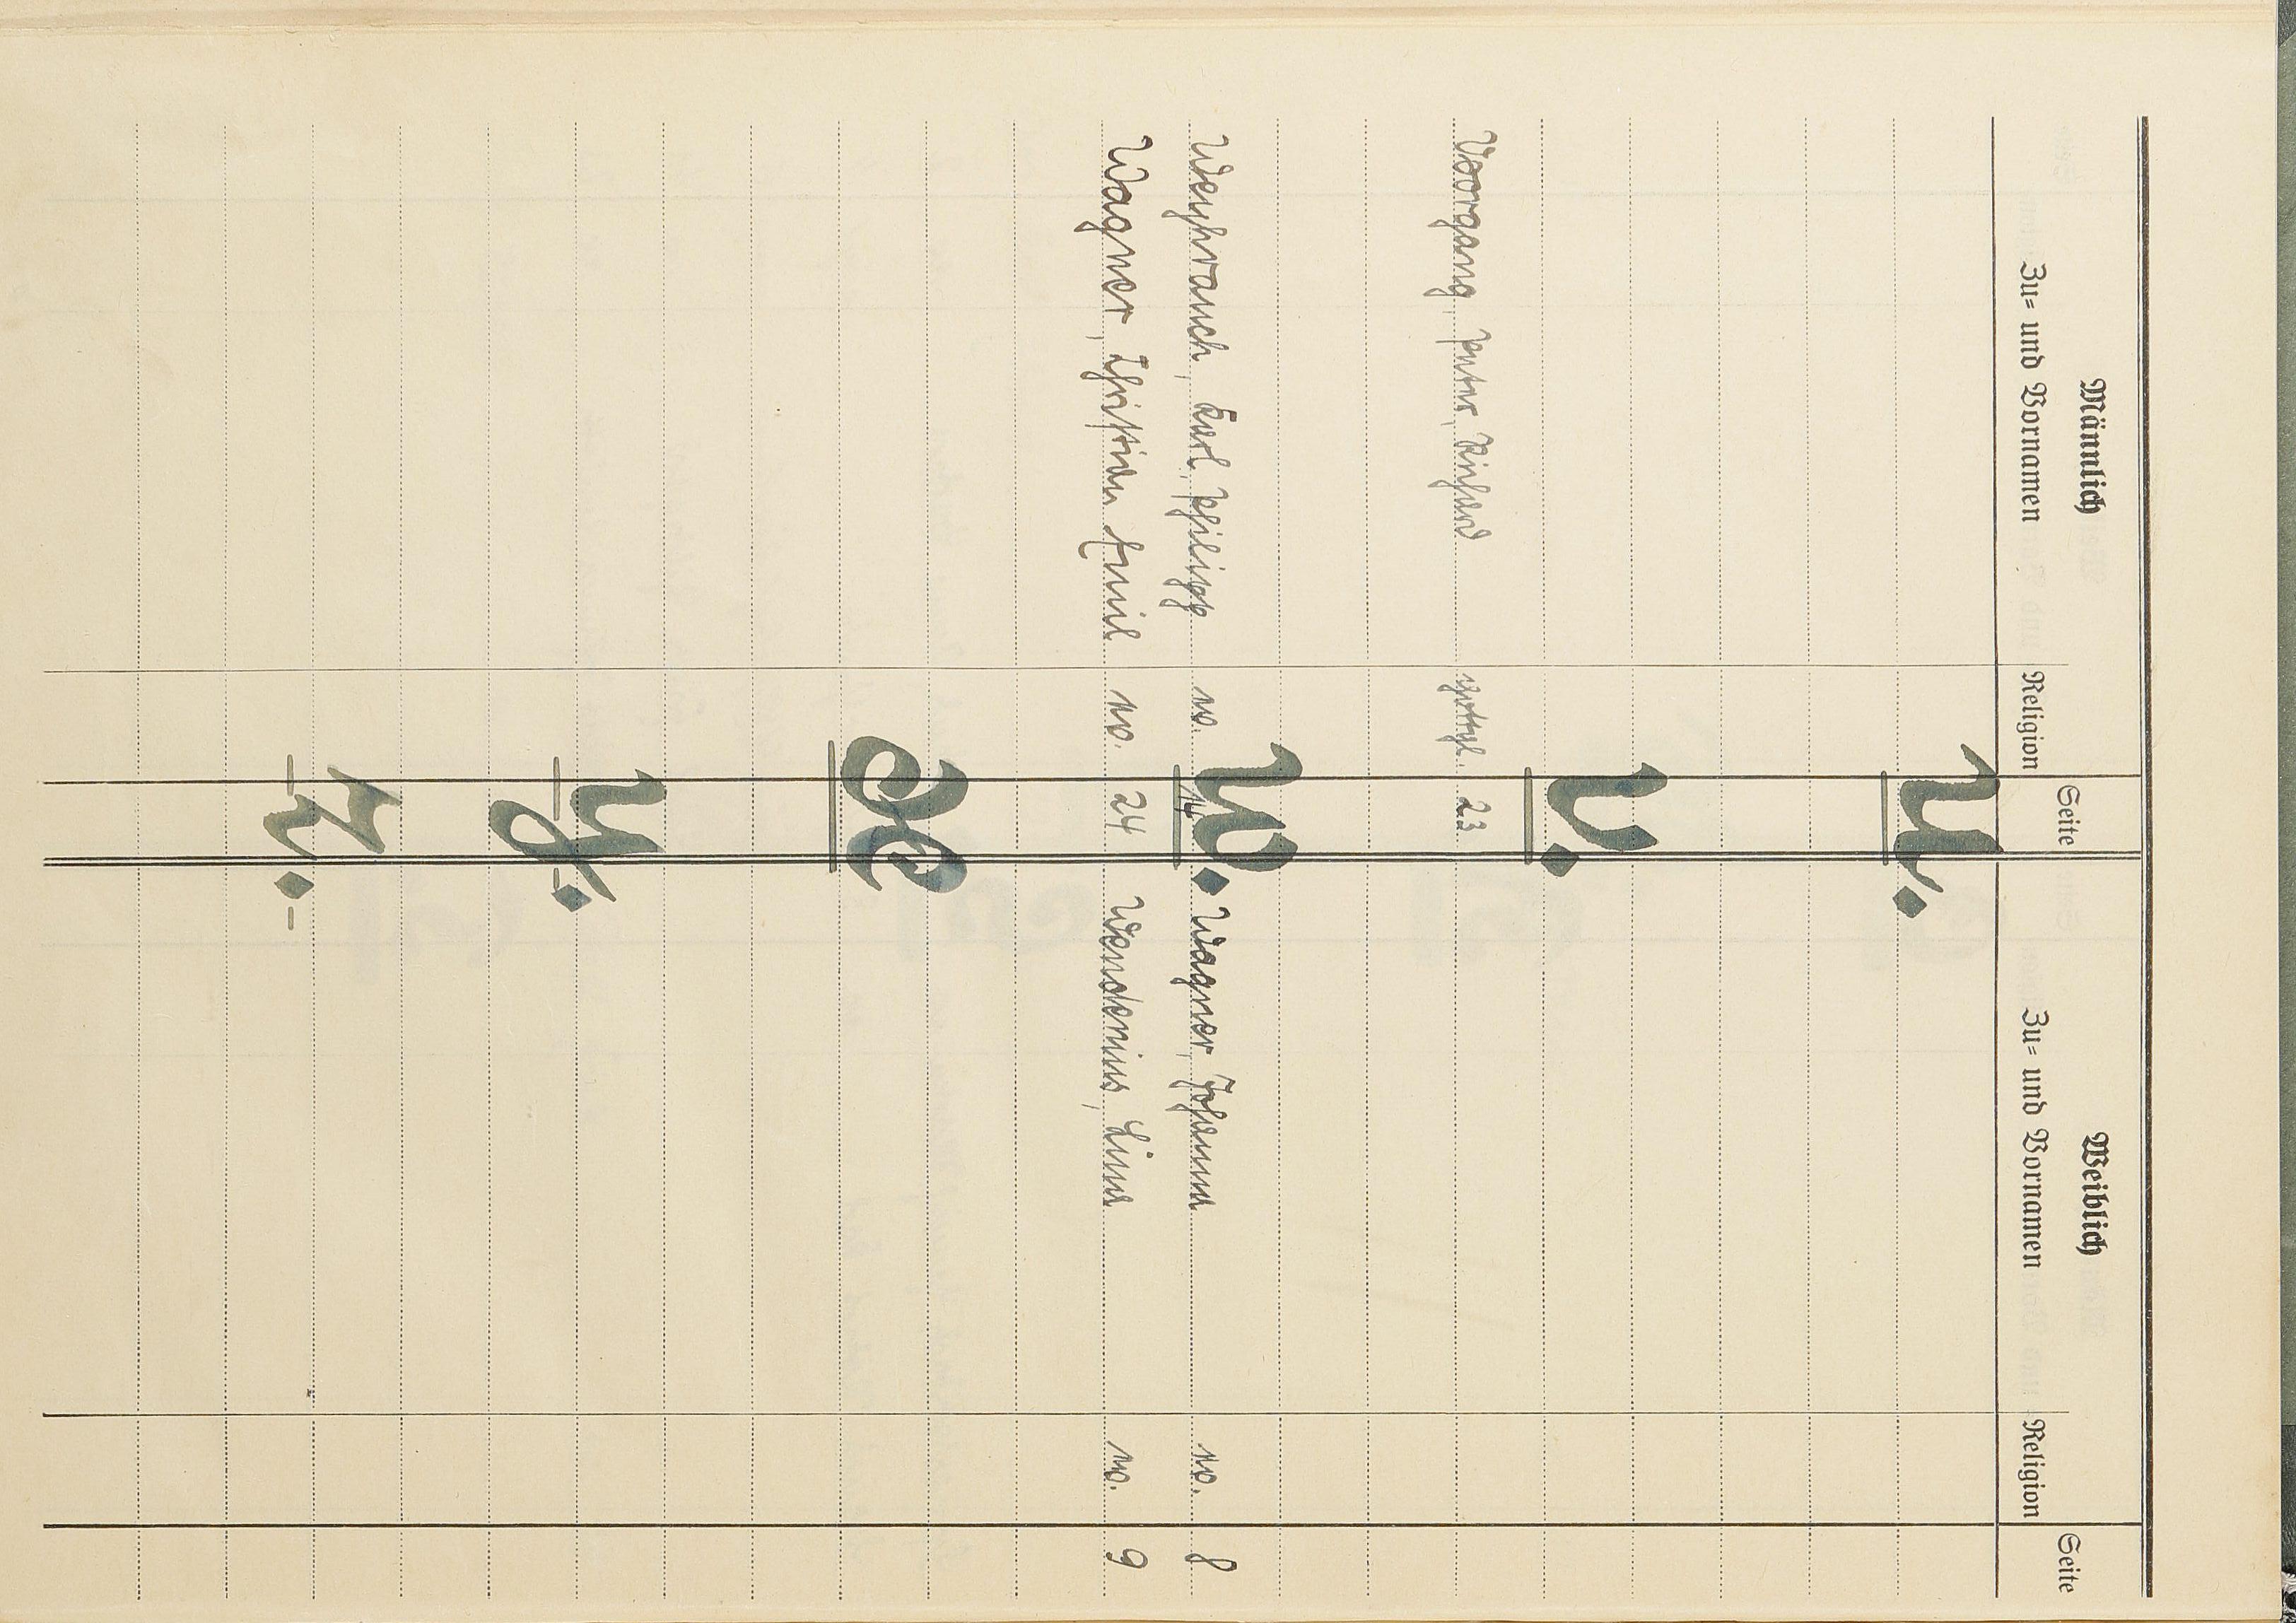 Männlich Weiblich
Zu= und Vornamen Religion Seite Zu= und Vornamen Religion Seite
U.
V.
Voorgang, Peter, Richard 23
W.
Weyhrauch, Karl Philipp w. 14 Wagner, Johanna w. 8
Wagner, Christian Emil w. 24 Wenderius, Lina w. 9
X
Y.
Z.